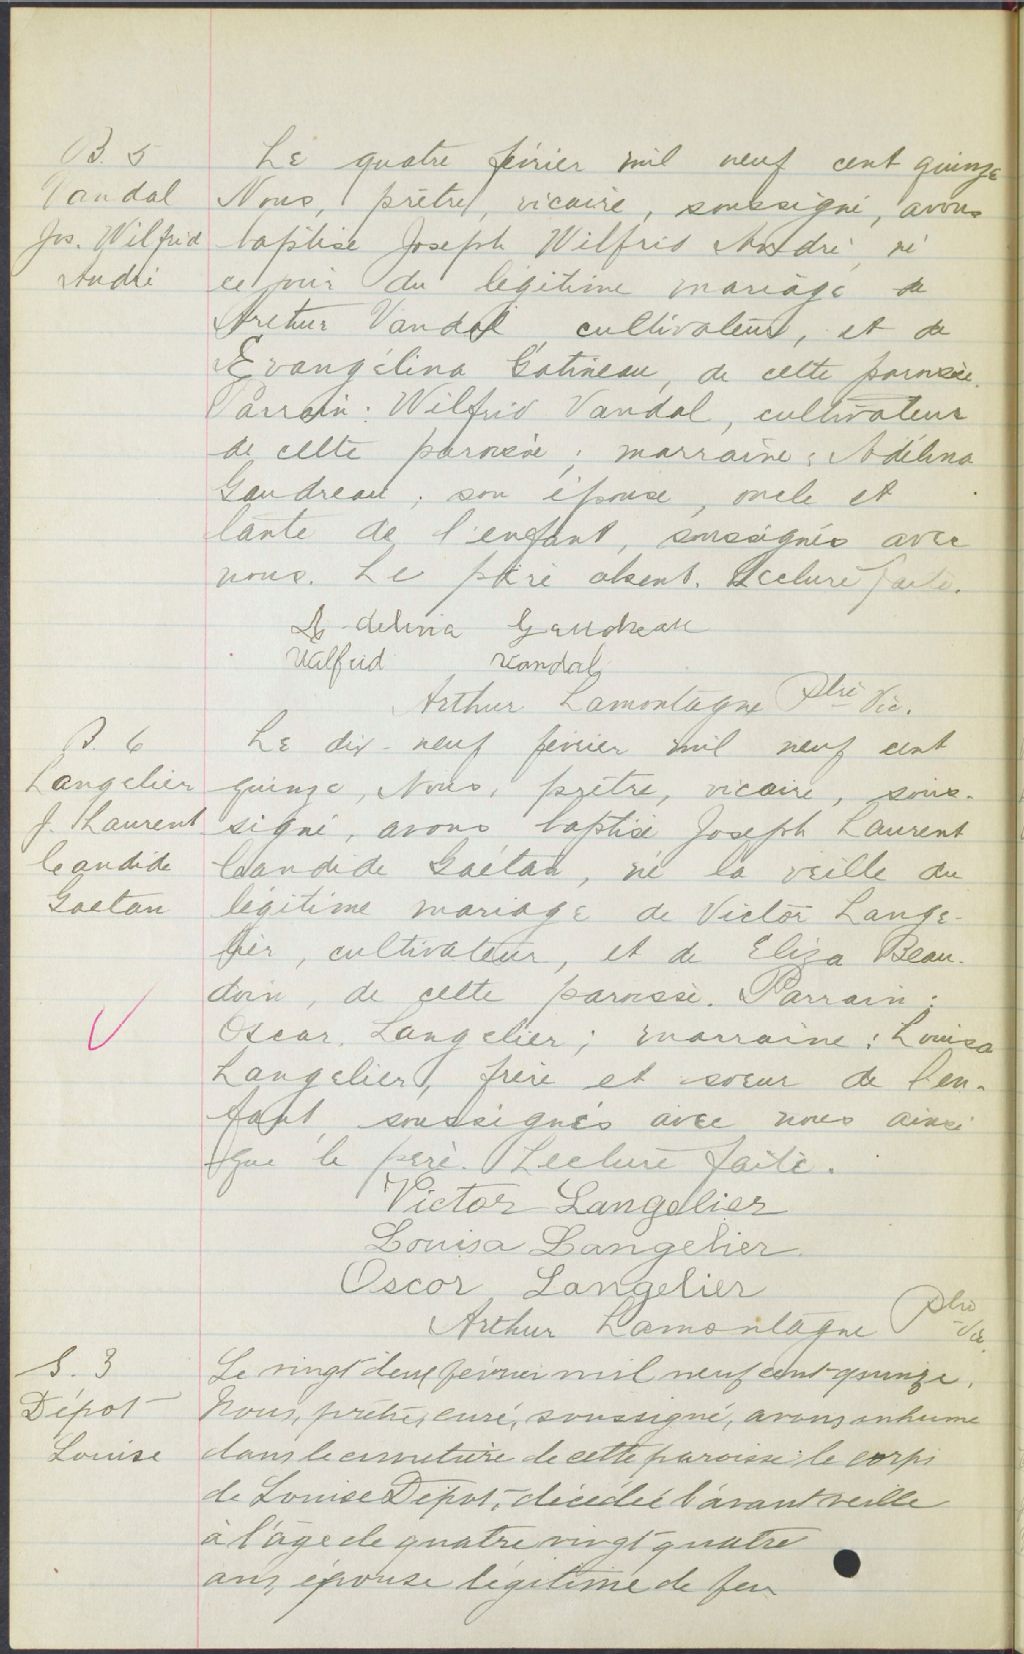 B. 5
Vandal
Jos. Wilfrid
André
Le quatre février mil neuf cent quinze
Nous, prêtre, vicaire, soussigné, avons
baptisé Joseph Wilfrid André, né
ce jour du légitime mariage de
Arthur Vandal, cultivateur, et de
Evangélina Gatineau, de cette paroisse.
Parrain: Wilfrid Vandal, cultivateur
de cette paroisse; marraine: Adélina
Gaudreau, son épouse, oncle et
tante de l'enfant, soussignés avec
nous. Le père absent. Lecture faite.
Adelina Gaudreau
Wilfrid Vandal
Arthur Lamontagne Ptre Vic.
B. 6
Langelier
J. Laurent
Candide
Gaetan
Le dix-neuf février mil neuf cent
quinze, Nous, prêtre, vicaire, sous-
signé, avons baptisé Joseph Laurent
Candide Gaétan, né la veille du
légitime mariage de Victor Lange-
lier, cultivateur, et de Eliza Beau-
doin, de cette paroisse. Parrain:
Oscar Langelier; marraine: Louisa
Langelier, frère et soeur de l'en-
fant, soussignés avec nous ainsi
que le père. Lecture faite.
Victor Langelier
Louisa Langelier
Oscar Langelier
Arthur Lamontagne Ptre Vic.
S. 3
Dépot
Louise
Le vingt deux février mil neuf cent quinze,
Nous, prêtre, curé, soussigné, avons inhumé
dans le cimetière de cette paroisse le corps
de Louise Dépot, décédée l'avant veille
à l'âge de quatre vingt quatre
ans, épouse légitime de feu